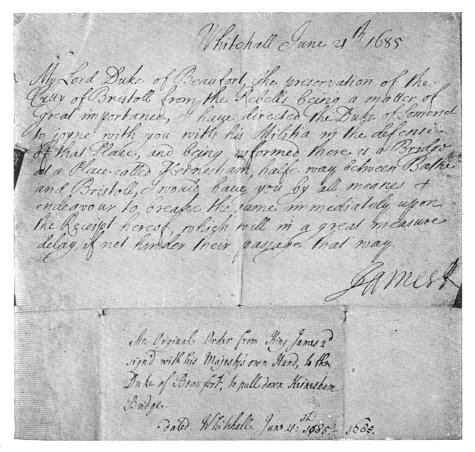 Whitehall June 21th 1685
My Lord Duke of Beaufort, the preservation of the
Citty of Bristoll from the Rebells being a matter of
Great importance, I have directed the Duke of Somerset
to joyne with you with his Militia in the defense
of that Place, and being informed there is a Bridge
at a Place called half way between Bathe
and Bristoll, I would have you by all meanes +
endeavour to breake the same immediately upon
the Receipt hereof, which will in a great measure
delay, if not hinder their passage that way.
James R
An Original Order from King James 2d
sign'd with his Majestys own Hand, to the
Duke of Beaufort, to pull down Keinesham
Bridge.
dated Whitehall June 21st 1685